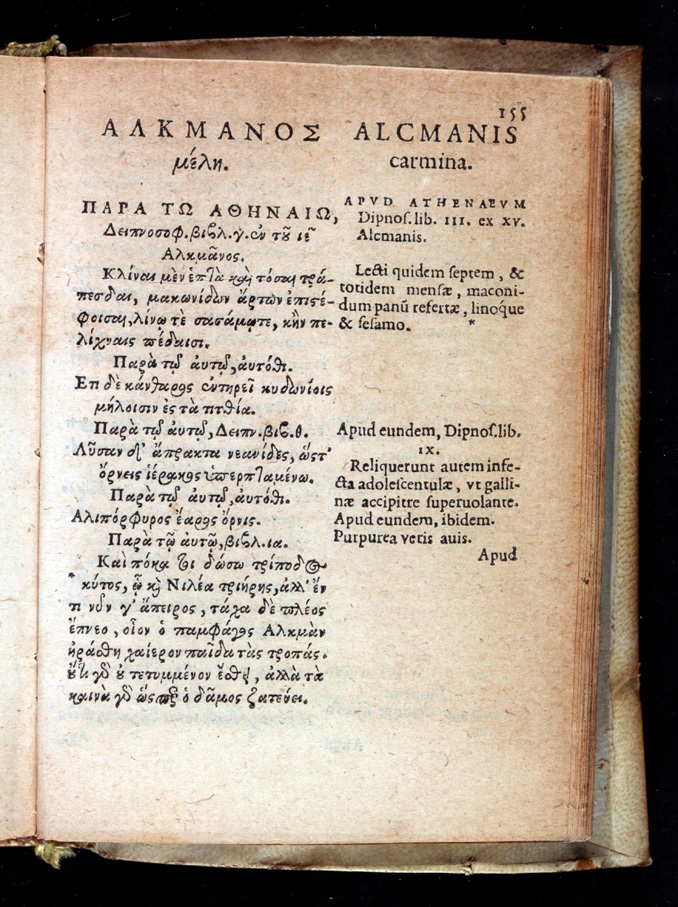 155
ΑΛΚΜΑΝΟΣ
μέλη.
ΠΑΡΑ ΤΩ ΑΘΗΝΑΙΩ,
Δειπνοσοφ.βιβλ.γ.ἐν τοῦ ιε
Αλκμᾶνος.
Κλίναι μὲν ἑπτὰ καὶ τόσαι τρά-
πεσδαι, μακωνίδων ἄρτων ἐπιστέ-
φοισαι, λίνω τὲ σασάμῳτε, κἠν πε-
λίχναις πέδαισι.
Παρὰ τῷ ἀυτῷ, ἀυτόθι.
Επὶ δὲ κάνθαρος ἐντηρεῖ κυδωνίοις
μήλοισιν ἐς τὰ πτθία.
Παρὰ τῷ ἀυτῷ, Δειπν.βιβ.θ.
Λῦσαν δ' ἄπρακτα νεανίδες, ὥστ'
ὄρνεις ἱέρακος ὑπερπταμένω.
Παρὰ τῷ ἀυτῷ, ἀυτόθι.
Αλιπόρφυρος ἔαρος ὄρνις.
Παρὰ τῷ ἀυτῷ, βιβλ.ια.
Καὶ πόκα τι δώσω τρίποδος
κύτος, ᾧ κὶ Νιλέα τριήρης, ἀλλ' ἔν
τι νῦν γ' ἄπειρος, τάχα δὲ πλέος
ἔπνεο, οἷον ὁ παμφάγος Αλκμὰν
ἠράσθη χαίερον παῖδα τὰς τροπάς.
οὔτι γὸ οὐ τετυμμένον ἔσθει, ἀλλὰ τὰ
καινὰ γὸ ὥσπερ ὁ δᾶμος ζατεύει.
ALCMANIS
carmina.
APVD ATHENAEVM
Dipnoſ.lib. III. ex XV.
Alcmanis.
Lecti quidem ſeptem, &
totidem menſæ, maconi-
dum panū refertæ, linóque
& ſeſamo. *
Apud eundem, Dipnoſ.lib.
IX.
Reliquerunt autem infe-
cta adoleſcentulæ, vt galli-
næ accipitre ſuperuolante.
Apud eundem, ibidem.
Purpurea veris auis.
Apud